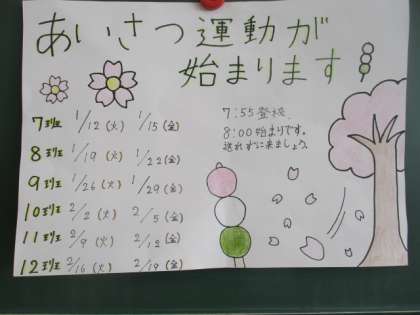 あいさつ運動が
始まります
7班 1/12(火) 1/15(金)
8班 1/19(火) 1/22(金)
9班 1/26(火) 1/29(金)
10班 2/2(火) 2/5(金)
11班 2/9(火) 2/12(金)
12班 2/16(火) 2/19(金)
7:55登校
8:00始まりです。
送れずに来ましょう。